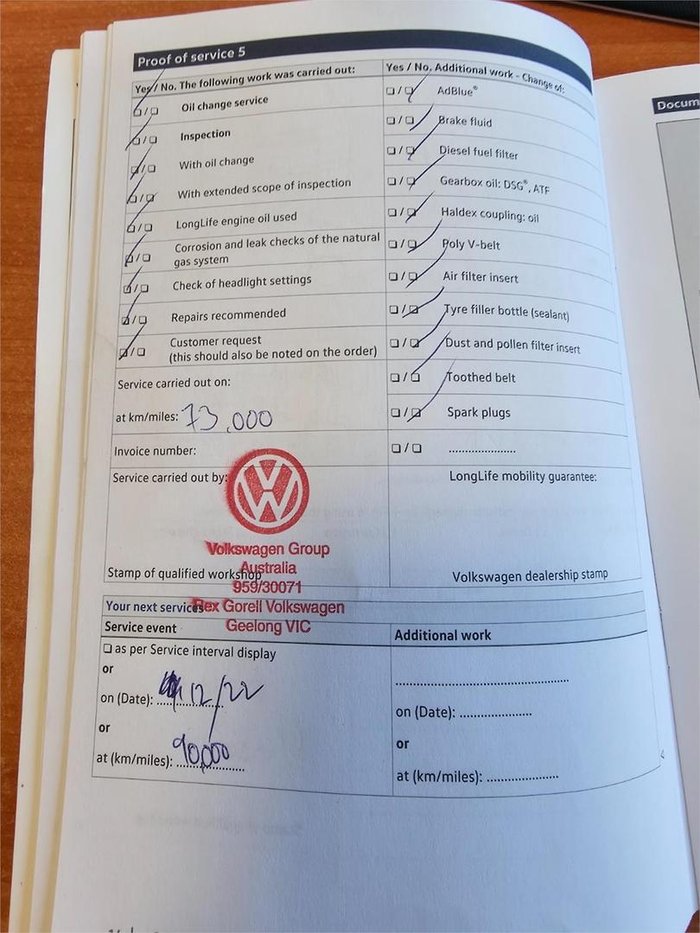 Proof of service 5
Yes/ No. The following work was carried out:
❏/❏ Oil change service
❏/❏ Inspection
❏/❏ With oil change
❏/❏ With extended scope of inspection
❏/❏ LongLife engine oil used
❏/❏ Corrosion and leak checks of the natural
gas system
❏/❏ Check of headlight settings
❏/❏ Repairs recommended
❏/❏ Customer request
(this should also be noted on the order)
Service carried out on:
at km/miles: 73,000
Invoice number:
Service carried out by:
Stamp of qualified workshop
Yes / No. Additional work - Change of:
❏/❏ AdBlue®
❏/❏ Brake fluid
❏/❏ Diesel fuel filter
❏/❏ Gearbox oil: DSG®, ATF
❏/❏ Haldex coupling: oil
❏/❏ Poly V-belt
❏/❏ Air filter insert
❏/❏ Tyre filler bottle (sealant)
❏/❏ Dust and pollen filter insert
❏/❏ Toothed belt
❏/❏ Spark plugs
❏/❏ ......................
LongLife mobility guarantee:
Volkswagen dealership stamp
Volkswagen Group
Australia
959/30071
Rex Gorell Volkswagen
Geelong VIC
Your next services
Service event
❏ as per Service interval display
or
on (Date): 12/22
or
at (km/miles): 90,000
Additional work
......................................................
on (Date): ......................
or
at (km/miles): ......................
Docum